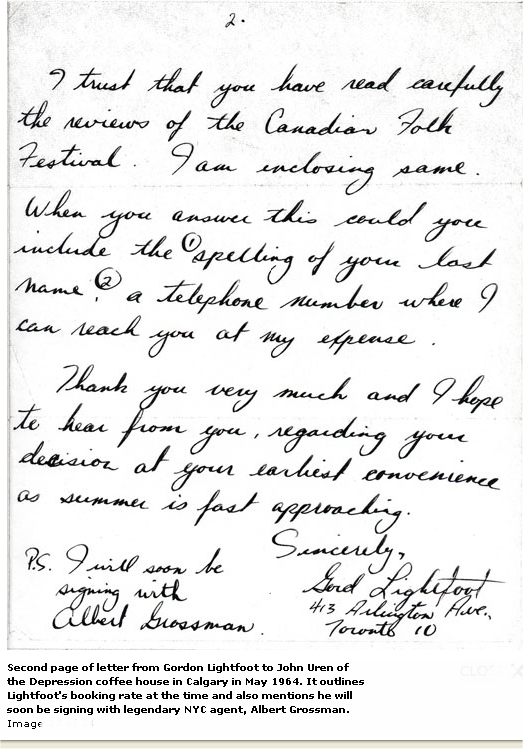 2.
I trust that you have read carefully
the reviews of the Canadian Folk
Festival. I am inclosing same.
When you answer this could you
include the ① spelling of your last
name? ② a telephone number where I
can reach you at my expense.
Thank you very much and I hope
to hear from you, regarding your
decision at your earliest convenience
as summer is fast approaching.
Sincerely,
Gord Lightfoot
413 Arlington Ave.,
Toronto 10
P.S. I will soon be
signing with
Albert Grossman.
Second page of letter from Gordon Lightfoot to John Uren of
the Depression coffee house in Calgary in May 1964. It outlines
Lightfoot's booking rate at the time and also mentions he will
soon be signing with legendary NYC agent, Albert Grossman.
Image